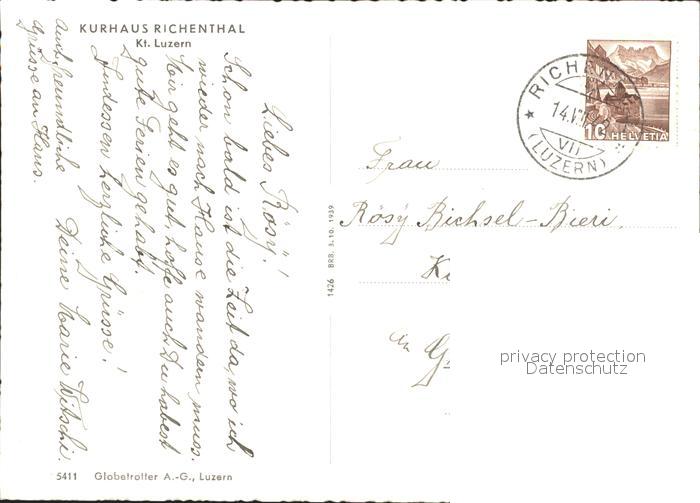 KURHAUS RICHENTHAL
Kt. Luzern
Liebes Rösy!
Schon bald ist die Zeit da, wo ich
wieder nach Hause wandern muss.
Mir geht es gut, hoffe auch Du habest
gute Ferien gehabt.
Indessen herzliche Grüsse!
Deine Marie Witschi.
Auch freundliche
Grüsse an Hans.
5411 Globetrotter A.-G., Luzern
1426 BRB. 3.10.1939
RICHEN
14.VII
VII
(LUZERN)
10 HELVETIA
Frau
Rösy Bichsel-Bieri,
in
privacy protection
Datenschutz